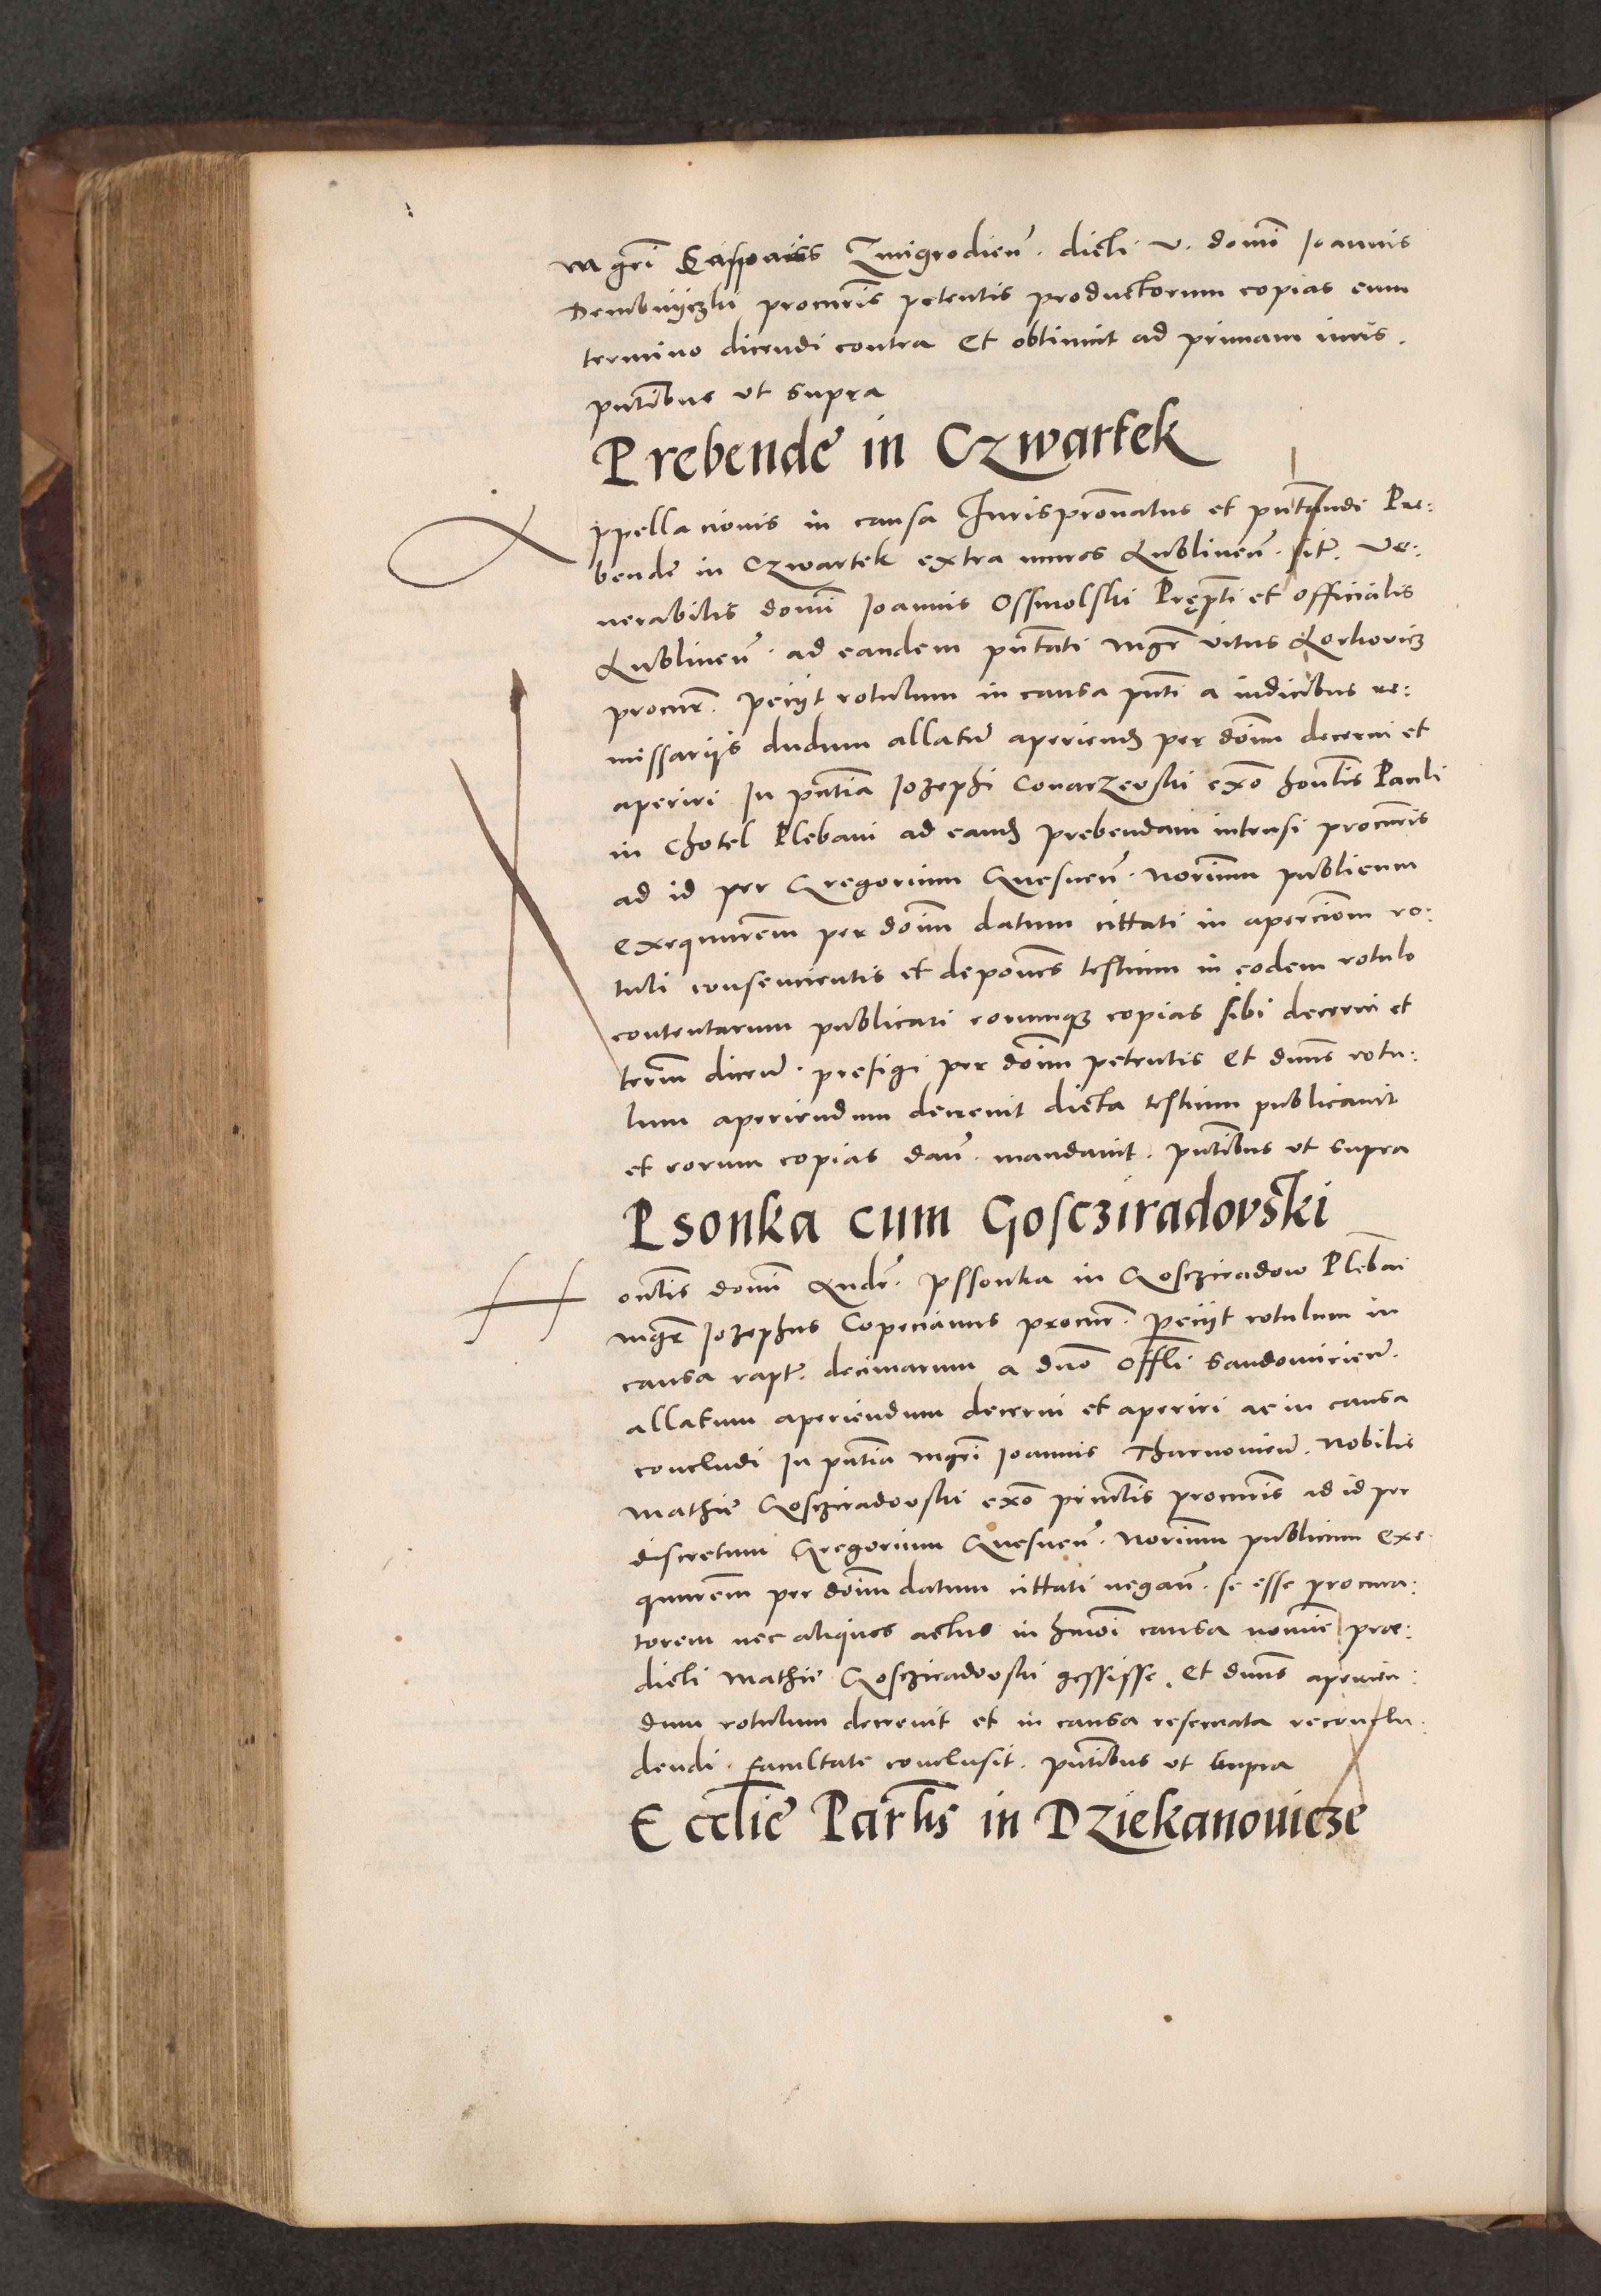 mgrĩ Casparis Zmigrodieñ. dicti v. domĩ Ioannis
Dembnyczki procurĩs petentis productorum copias cum
termino dicendi contra Et obtinuit ad primam iuris.
pñtibus ut supra
Prebendę in Czwartek
Appellacionis in causa Iurisprõnatus et pñtandi Pre:
bendę in Czwartek extra muros Lublineñ. sit̃. Ve:
nerabilis domĩ Ioannis Ossmolski Pręptĩ et officialis
Lublineñ. ad eandem pñtati mgr̃ Vitus
procur̃. peciit rotulum in causa pñti a iudicibus re:
missariis dudum allatũ aperiend per dõim decerni et
aperiri In pñtia Iozephi Convarzevski exõ honĩlis Pauli
in Chotel Plebani ad eand prebendam intrusi procurĩs
ad id per Gregorium Gnesneñ. norium publicum
exequutrem per dõim datum cittati in apercĩom ro:
tuli consencientis et deponẽs testium in eodem rotulo
contentarum publicari eorumq3 copias sibi decerni et
termĩ diceñ. prefigi per dõim petentis Et dñus rotu:
lum aperiendum decrevit dicta testium publicavit
et eorum copias dañ. mandavit. pñtibus ut supra
Psonka cum Goscziradovski
Honĩlis domĩ Andr̃. Pssonka in Goscziradow Plebani
mgr̃ Iozephus Copecianus procur̃. peciit rotulum in
causa rapt̃. decimarum a dño Offli Sandomirieñ.
allatum aperiendum decerni et aperiri ac in causa
concludi In pñtia mgrĩ Ioannis Tharnovieñ. Nobilis
Mathie Goscziradovski exõ prinĩlis procurĩs ad id per
discretum Gregorium Gnesneñ. Norium publicum exe
qutrem per dõim datum cittati negañ. se esse procura:
torem nec aliquos actus in hmõi causa nomie prae:
dicti Mathie Gosczyradovski gessisse. Et dñus aperien:
dum rotulum decrevit et in causa reservata reconclu:
dendi facultate conclusit. pñtibus ut supra
Ecclie Parlis in Dziekanovicze